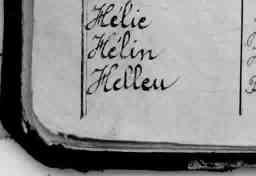 Hélie
Hélin
Helleu